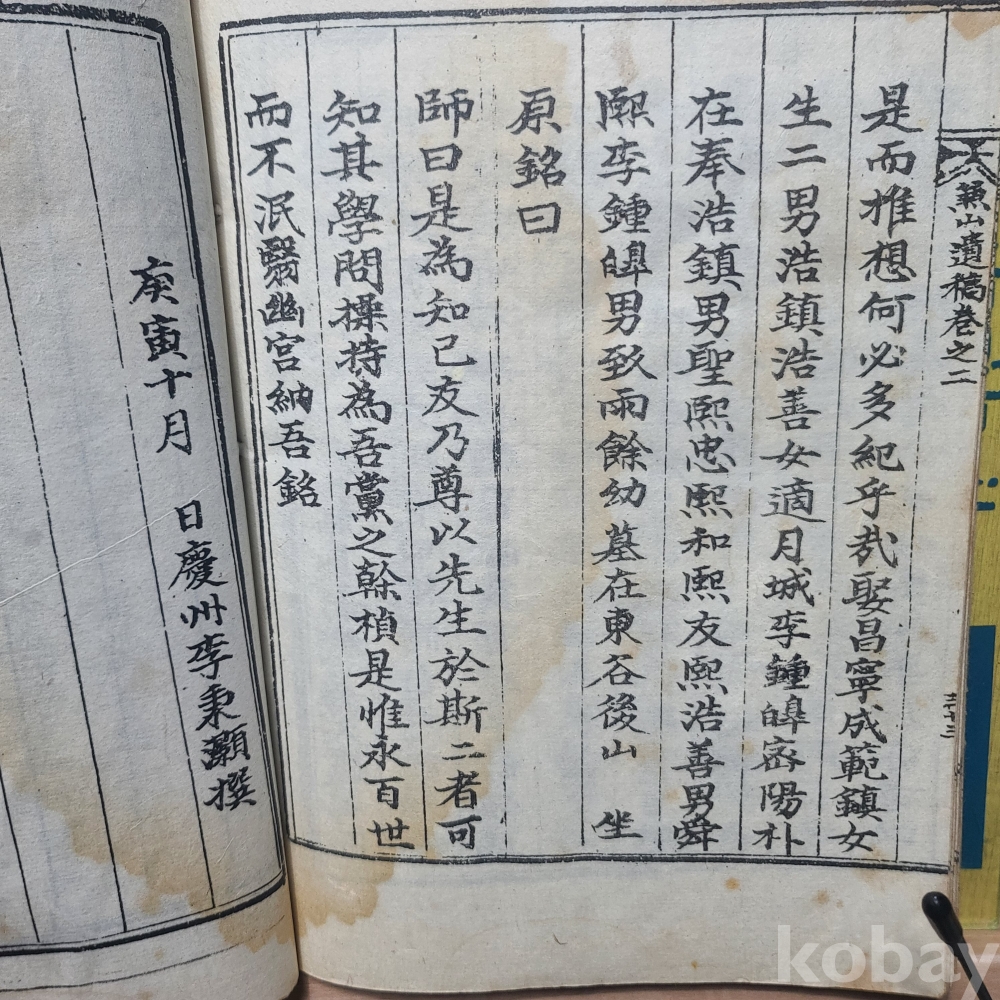 兼山遺稿卷之二
是而惟想何必多紀乎哉娶昌寧成範鎮女
生二男浩鎮浩善女適月城李鍾皥密陽朴
在奉浩鎮男聖熙忠熙和熙友熙浩善男舜
熙李鍾皥男致雨餘幼墓在東谷後山 坐
原銘曰
師曰是為知己友乃尊以先生於斯二者可
知其學問操持為吾黨之榦楨是惟永百世
而不泯翳幽宮納吾銘
庚寅十月 日慶州李秉灝撰
kobay